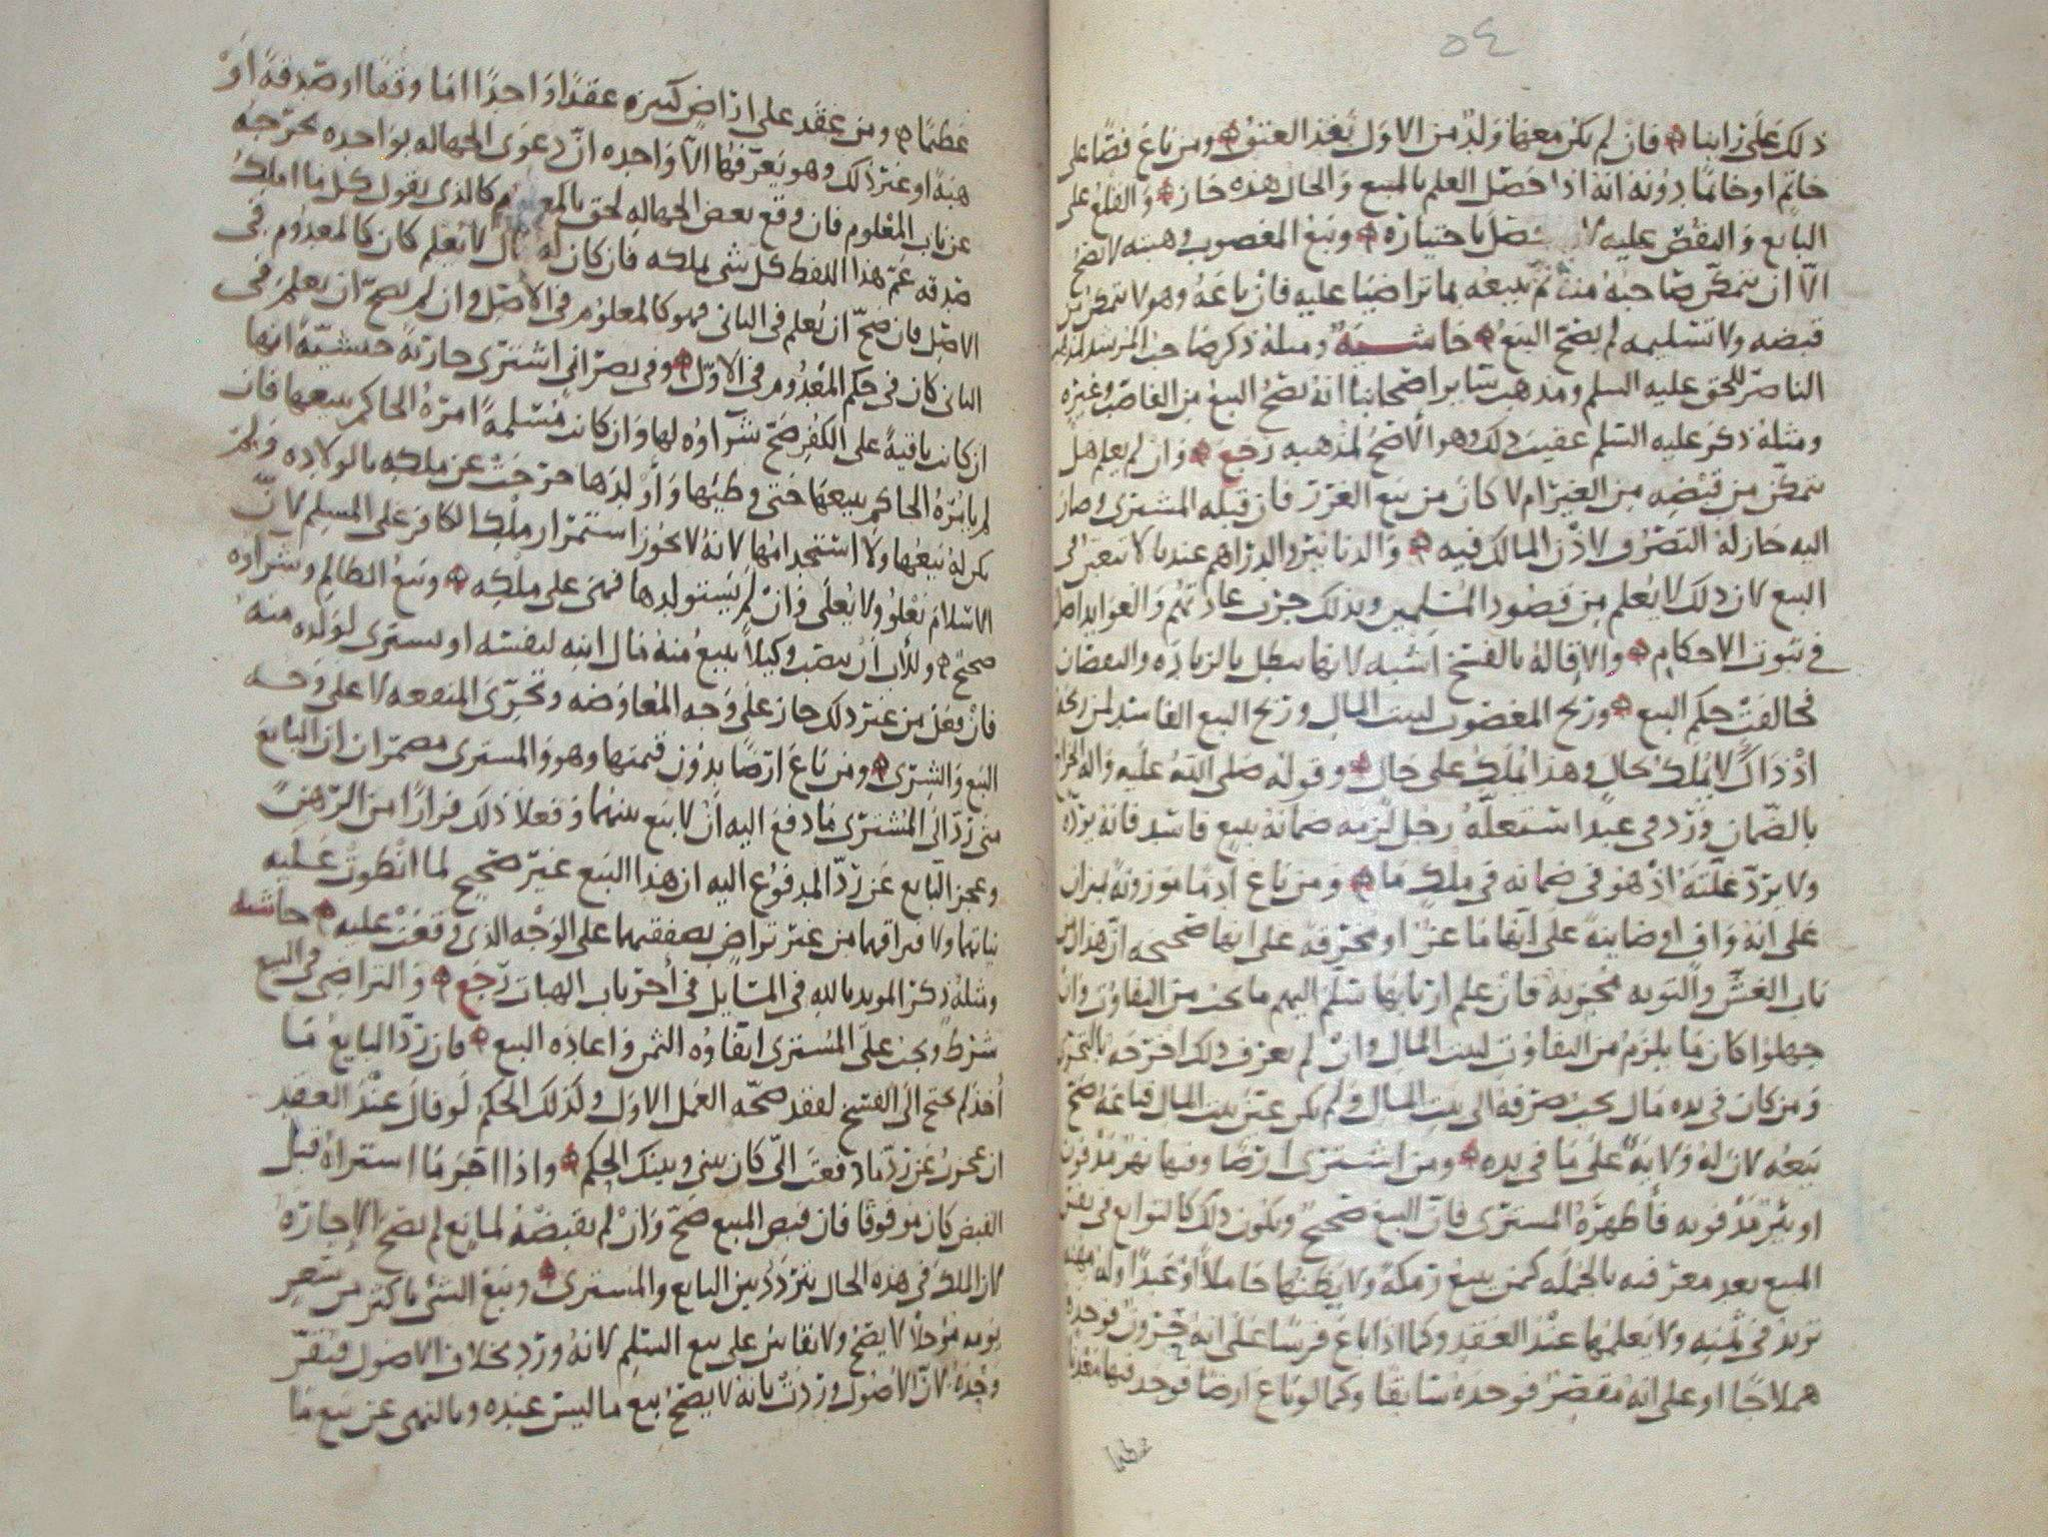 ٥٤
ذلك على رأينا فإن لم يكن معها ولد من الاول نفذ العتق ومن باع فصا على
خاتم او خاتما دونه انه اذا حصل العلم بالمبيع والحال هذه جاز والقلع على
البايع والنقص عليه باختياره وبيع المغصوب وهبته لا تصح
الا ان يتمكن صاحبه منه ثم يبيعه بما تراضيا عليه فان باعه وهو لا يتمكن من
قبضه ولا تسليمه لم يصح البيع حاشية ومثله ذكر صاحب المرشد
الناصر للحق عليه السلم ومذهب سائر اصحابنا انه يصح البيع من الغاصب وغيره
ومثله ذكر عليه السلم عقيب ذلك وهو الأصح لمذهبه رجع وان لم يعلم هل
يتمكن من قبضه من الغير ام لا كان من بيع الغرر فان قبله المشتري وصار
اليه جاز له التصرف لاذن المالك فيه والدنانير والدراهم عندنا لا تتعين في
البيع لان ذلك لا يعلم من قصود المسلمين وبذلك جرت عادتهم والعوايد اصل
في ثبوت الاحكام والاقالة بالفسخ اشبه لانها تبطل بالزيادة والنقصان
فخالفت حكم البيع وربح المغصوب لبيت المال وربح البيع الفاسد لمن ربحه
اذ ذاك لا يملك بحال وهذا يملك على حال وقوله صلى الله عليه واله الخراج
بالضمان ورد في عبد استغله رجل لزمه ضمانه ببيع فاسد فانه يرده
ولا يرد غلته اذ هو في ضمانه في ملك ما ومن باع ادما موزونة بميزان
على انه واف او ضاينة على انها ماعز او محرقة على انها صحيحة ان هذا من
باب الغش والتوبة مجزية فان علم اربابها سلم اليهم ما يجب من التفاوت وان
جهلوا كان ما يلزم من التفاوت لبيت المال وان لم يعرف ذلك اخرجه بالتحري
ومن كان في يده مال يجب صرفه الى بيت المال ولم يكن عين بيت المال فباعه صح
بيعه لان له ولاية على ما في يده ومن اشترى ارضا وفيها نهر مدفون
او بئر مدفونة فأظهره المشتري فان البيع صحيح ويكون ذلك كالتوابع في نفس
المبيع بعد معرفته بالجملة كمن يبيع رمكة ولا يظنها حاملا او عبدا وله مهنة
تزيد في ثمنه ولا يعلمها عند العقد وكما اذا باع فرسا على انه حرون فوجده
هملاجا او على انه مقصر فوجده سابقا وكما لو باع ارضا فوجد فيها معدنا
عظيما
عظيما ومن عقد على اراض كثيرة عقدا واحدا اما وقفا او صدقة او
هبة او غير ذلك وهو يعرفها الا واحدة ان دعوى الجهالة بواحدة تخرجه
عن باب المعلوم فان وقع بعض الجهالة لحق بالمعلوم كالذي يقول كل ما املك
صدقة عم هذا اللفظ كل شي يملكه فان كان له مال لا يعلم كان كالمعدوم في
الاصل فان صح ان يعلم في الثاني فهو كالمعلوم في الأصل وان لم يصح ان يعلم في
الثاني كان في حكم المعدوم في الاول وفي نصراني اشترى جارية حبشية انها
ان كانت باقية على الكفر صح شراوه لها وان كانت مسلمة امره الحاكم ببيعها فان
لم يامره الحاكم ببيعها حتى وطيها وأولدها خرجت عن ملكه بالولادة ولم
يكن له بيعها ولا استخدامها لانه لا يجوز استمرار ملك الكافر على المسلم لان
الاسلام يعلو ولا يعلى وان لم يستولدها فهي على ملكه وبيع الظالم وشراوه
صحيح وللأب أن ينصب وكيلا يبيع منه مال ابنه لنفسه او يشتري لولده منه
فان فعل من غير ذلك جاز على وجه المعاوضة وتحري المنفعة لا على وجه
البيع والشرى ومن باع ارضا بدون قيمتها وهو والمشتري مضمران ان البايع
متى رد الى المشتري ما دفع اليه ان لا بيع بينهما وفعلا ذلك فرارا من الرهن
وعجز البايع عن رد المدفوع اليه ان هذا البيع غير صحيح لما انطوت عليه
نياتهما ولافتراقهما من غير تراض بصفقتهما على الوجه الذي وقعت عليه حاشية
ومثله ذكر المويد بالله في المسايل في أخر باب الهبات رجع والتراضي في البيع
شرط ويجب على المشتري ايفاؤه الثمن واعادة البيع فان رد البايع ما
أخذ لم يحتج الى الفسخ لفقد صحة العمل الاول وكذلك الحكم لو قال عند العقد
ان عجزت عن رد ما دفعت الي كان بيني وبينك الحكم واذا اجر ما استراه قبل
القبض كان موقوفا فان قبض المبيع صح وان لم يقبضه لمانع لم تصح الاجارة
لان الملك في هذه الحال يتردد بين البايع والمشتري وبيع الشي باكثر من سعر
يومه مؤجلا لا يصح ولا يقاس على بيع السلم لانه ورد بخلاف الاصول فيقر
وحده لان الاصول وردت بانه لا يصح بيع ما ليس عنده وبالنهي عن بيع ما